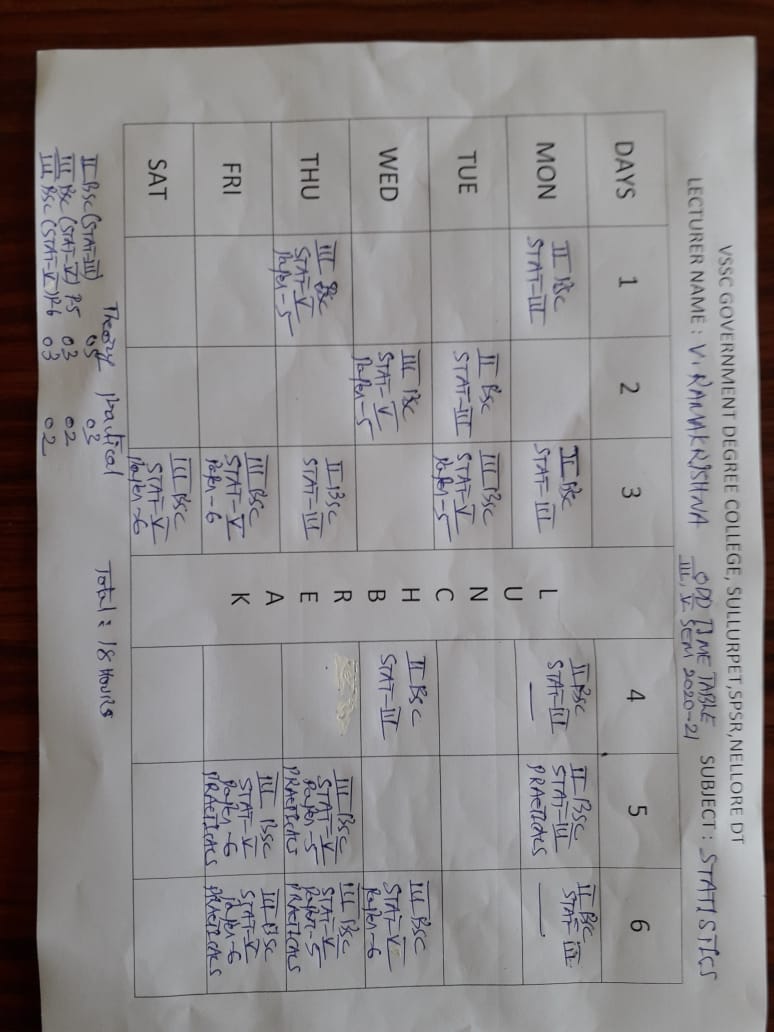 VSSC GOVERNMENT DEGREE COLLEGE, SULLURPET,SPSR,NELLORE DT
LECTURER NAME : V. RAMAKRISHNA ODD TIME TABLE SUBJECT : STATISTICS
III, V SEM 2020-21
DAYS 1 2 3 4 5 6
MON
II BSc
STAT-III
II BSc
STAT-III
II BSc
STAT-III
II BSc
STAT-III
PRACTICALS
II BSc
STAT-III
TUE
II BSc
STAT-III
III BSc
STAT-V
Paper-5
WED
III BSc
STAT-V
Paper-5
II BSc
STAT-III
III BSc
STAT-V
Paper-6
THU
III BSc
STAT-V
Paper-5
II BSc
STAT-III
III BSc
STAT-V
Paper-5
PRACTICALS
III BSc
STAT-V
Paper-5
PRACTICALS
FRI
III BSc
STAT-V
Paper-6
III BSc
STAT-V
Paper-6
PRACTICALS
III BSc
STAT-V
Paper-6
PRACTICALS
SAT
III BSc
STAT-V
Paper-6
L U N C H B R E A K
Theory Practical Total = 18 HOURS
II BSc (STAT-III) 05 03
III BSc (STAT-V) P5 03 02
III BSc (STAT-V) P6 03 02